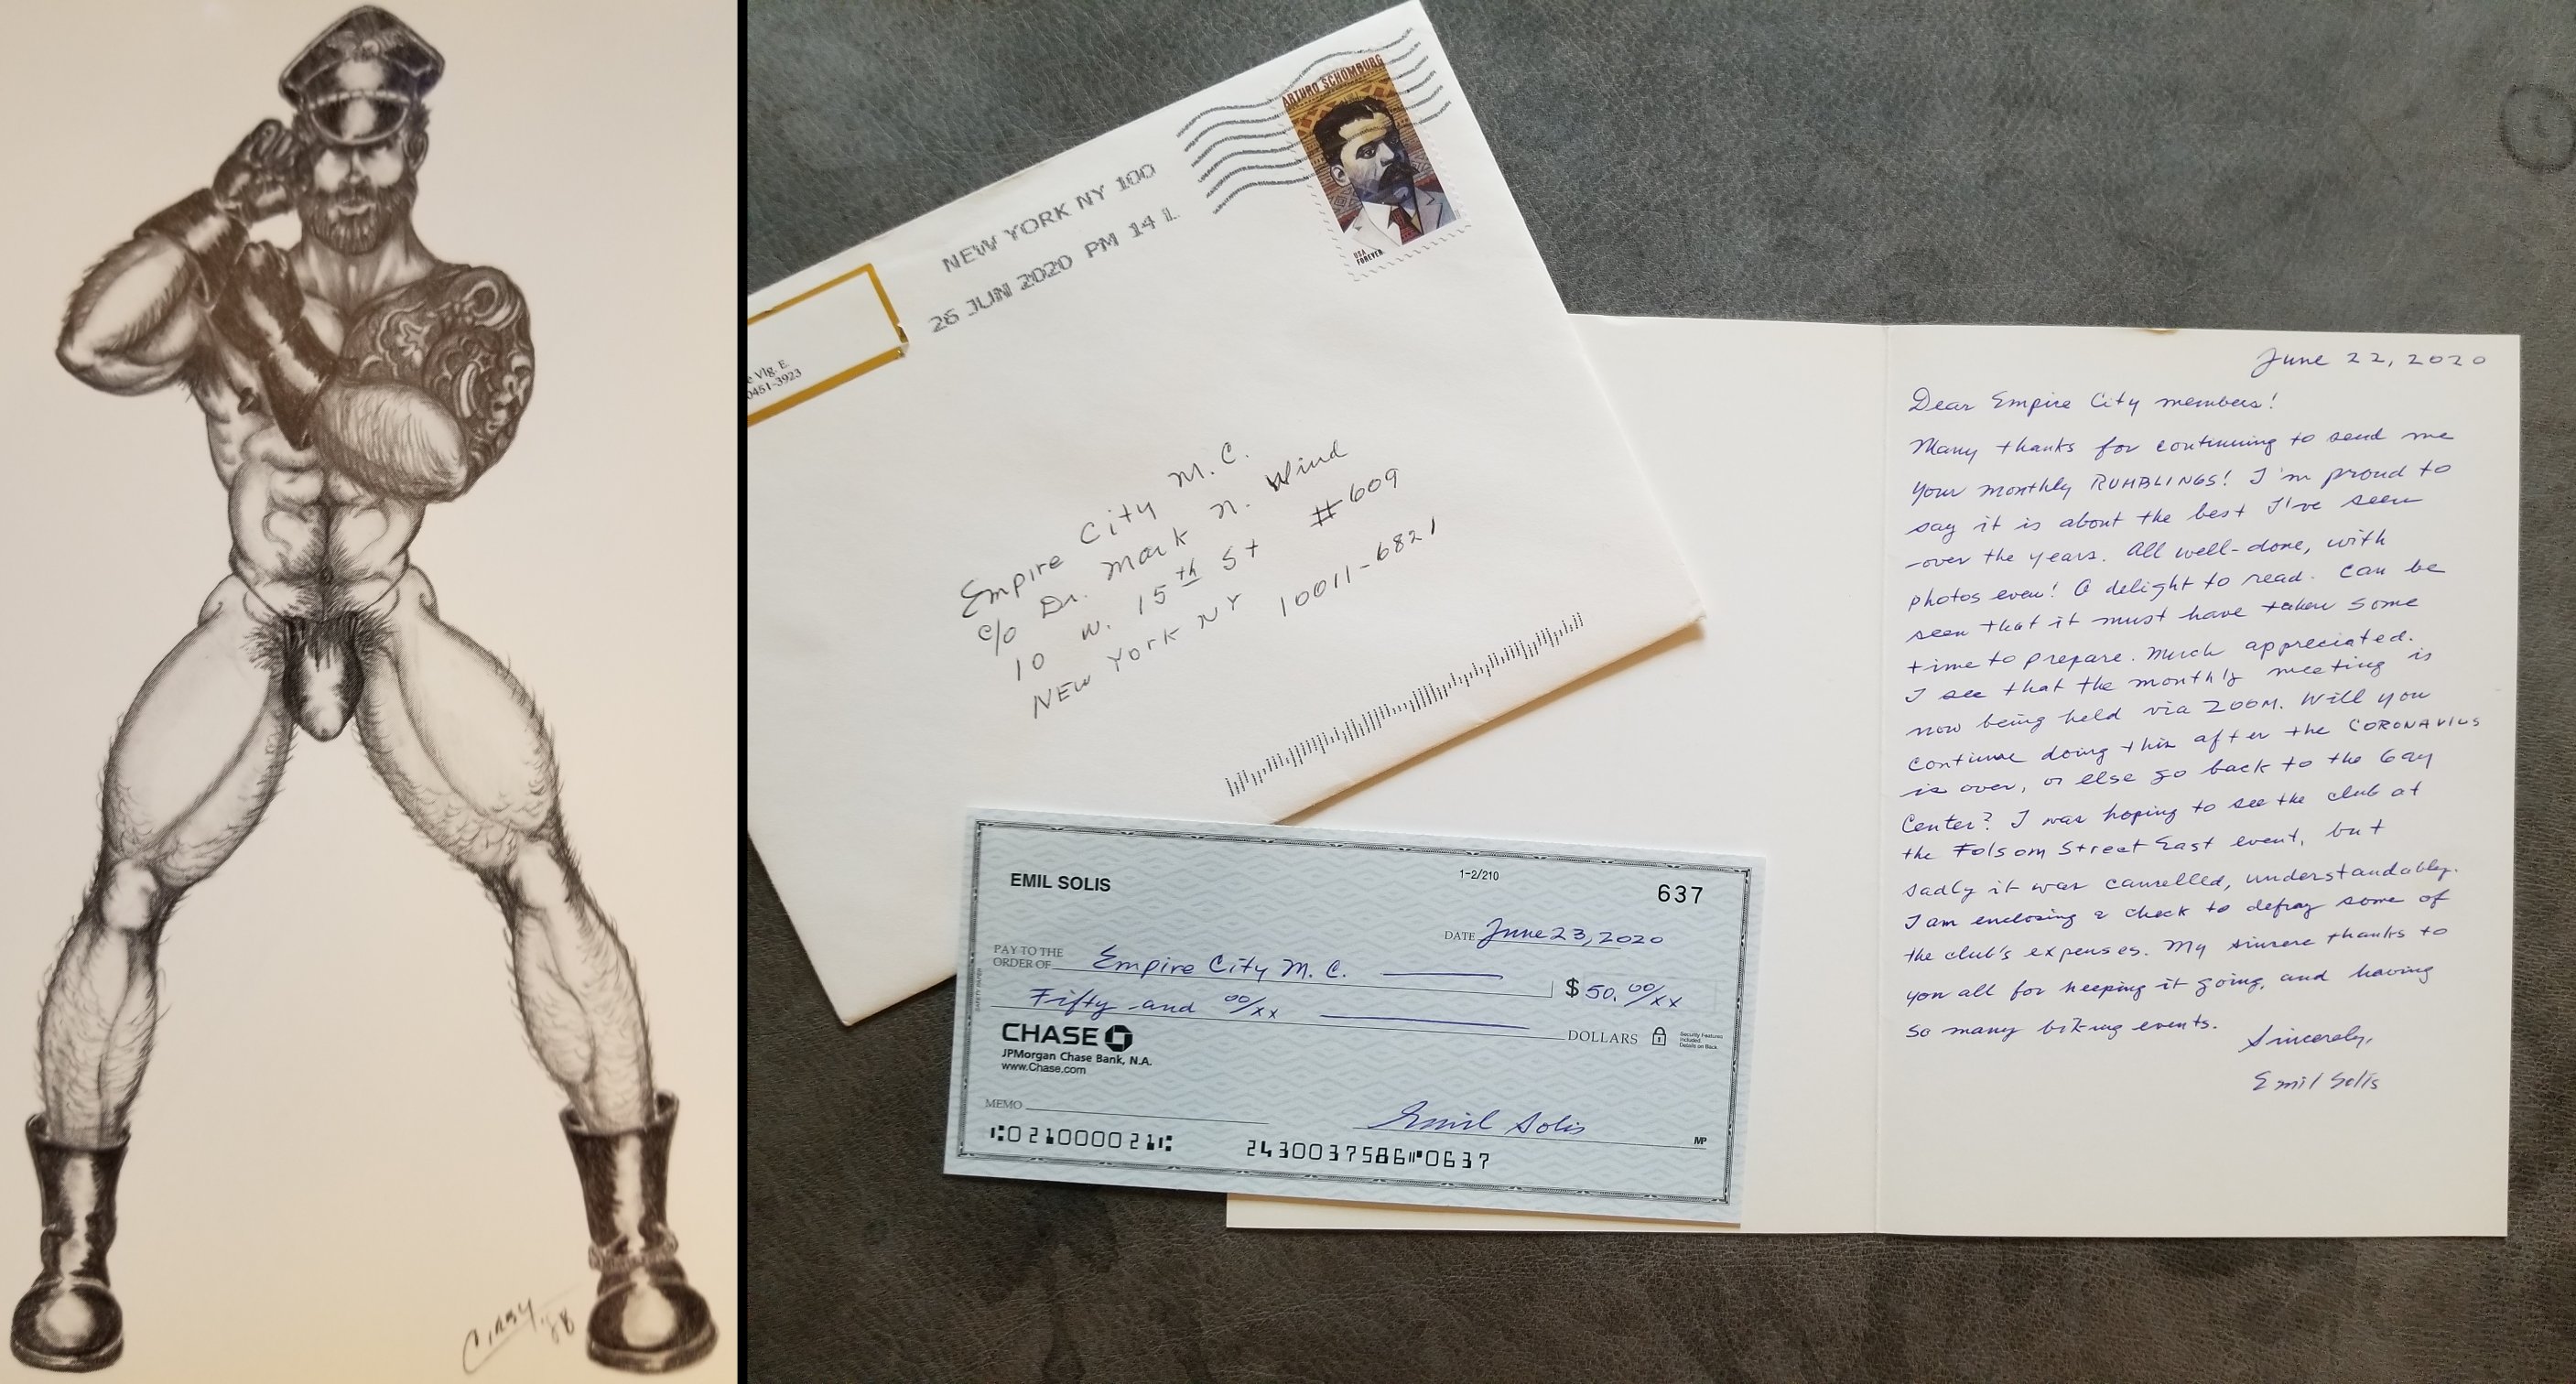 CIRBY '88
ARTURO SCHOMBURG
USA
FOREVER
NEW YORK NY 100
26 JUN 2020 PM 14 L
e Vlg. E
0451-3923
Empire City M.C.
c/o Dr. Mark N. Wind
10 W. 15th St #609
NEW YORK NY 10011-6821
June 22, 2020
Dear Empire City members!
Many thanks for continuing to send me
your monthly RUMBLINGS! I'm proud to
say it is about the best I've seen
over the years. All well-done, with
photos even! A delight to read. Can be
seen that it must have taken some
time to prepare. Much appreciated.
I see that the monthly meeting is
now being held via ZOOM. Will you
continue doing this after the CORONAVIUS
is over, or else go back to the Gay
Center? I was hoping to see the club at
the Folsom Street East event, but
sadly it was cancelled, understandably.
I am enclosing a check to defray some of
the club's expenses. My sincere thanks to
you all for keeping it going, and having
so many biking events.
Sincerely,
Emil Solis
EMIL SOLIS
1-2/210
637
DATE June 23, 2020
PAY TO THE
ORDER OF Empire City M.C. $ 50.00/xx
Fifty and 00/xx DOLLARS
Security Features
Included.
Details on Back.
CHASE
JPMorgan Chase Bank, N.A.
www.Chase.com
MEMO
Emil Solis
MP
⑆021000021⑆ 2430037586⑈0637
SAFETY PAPER